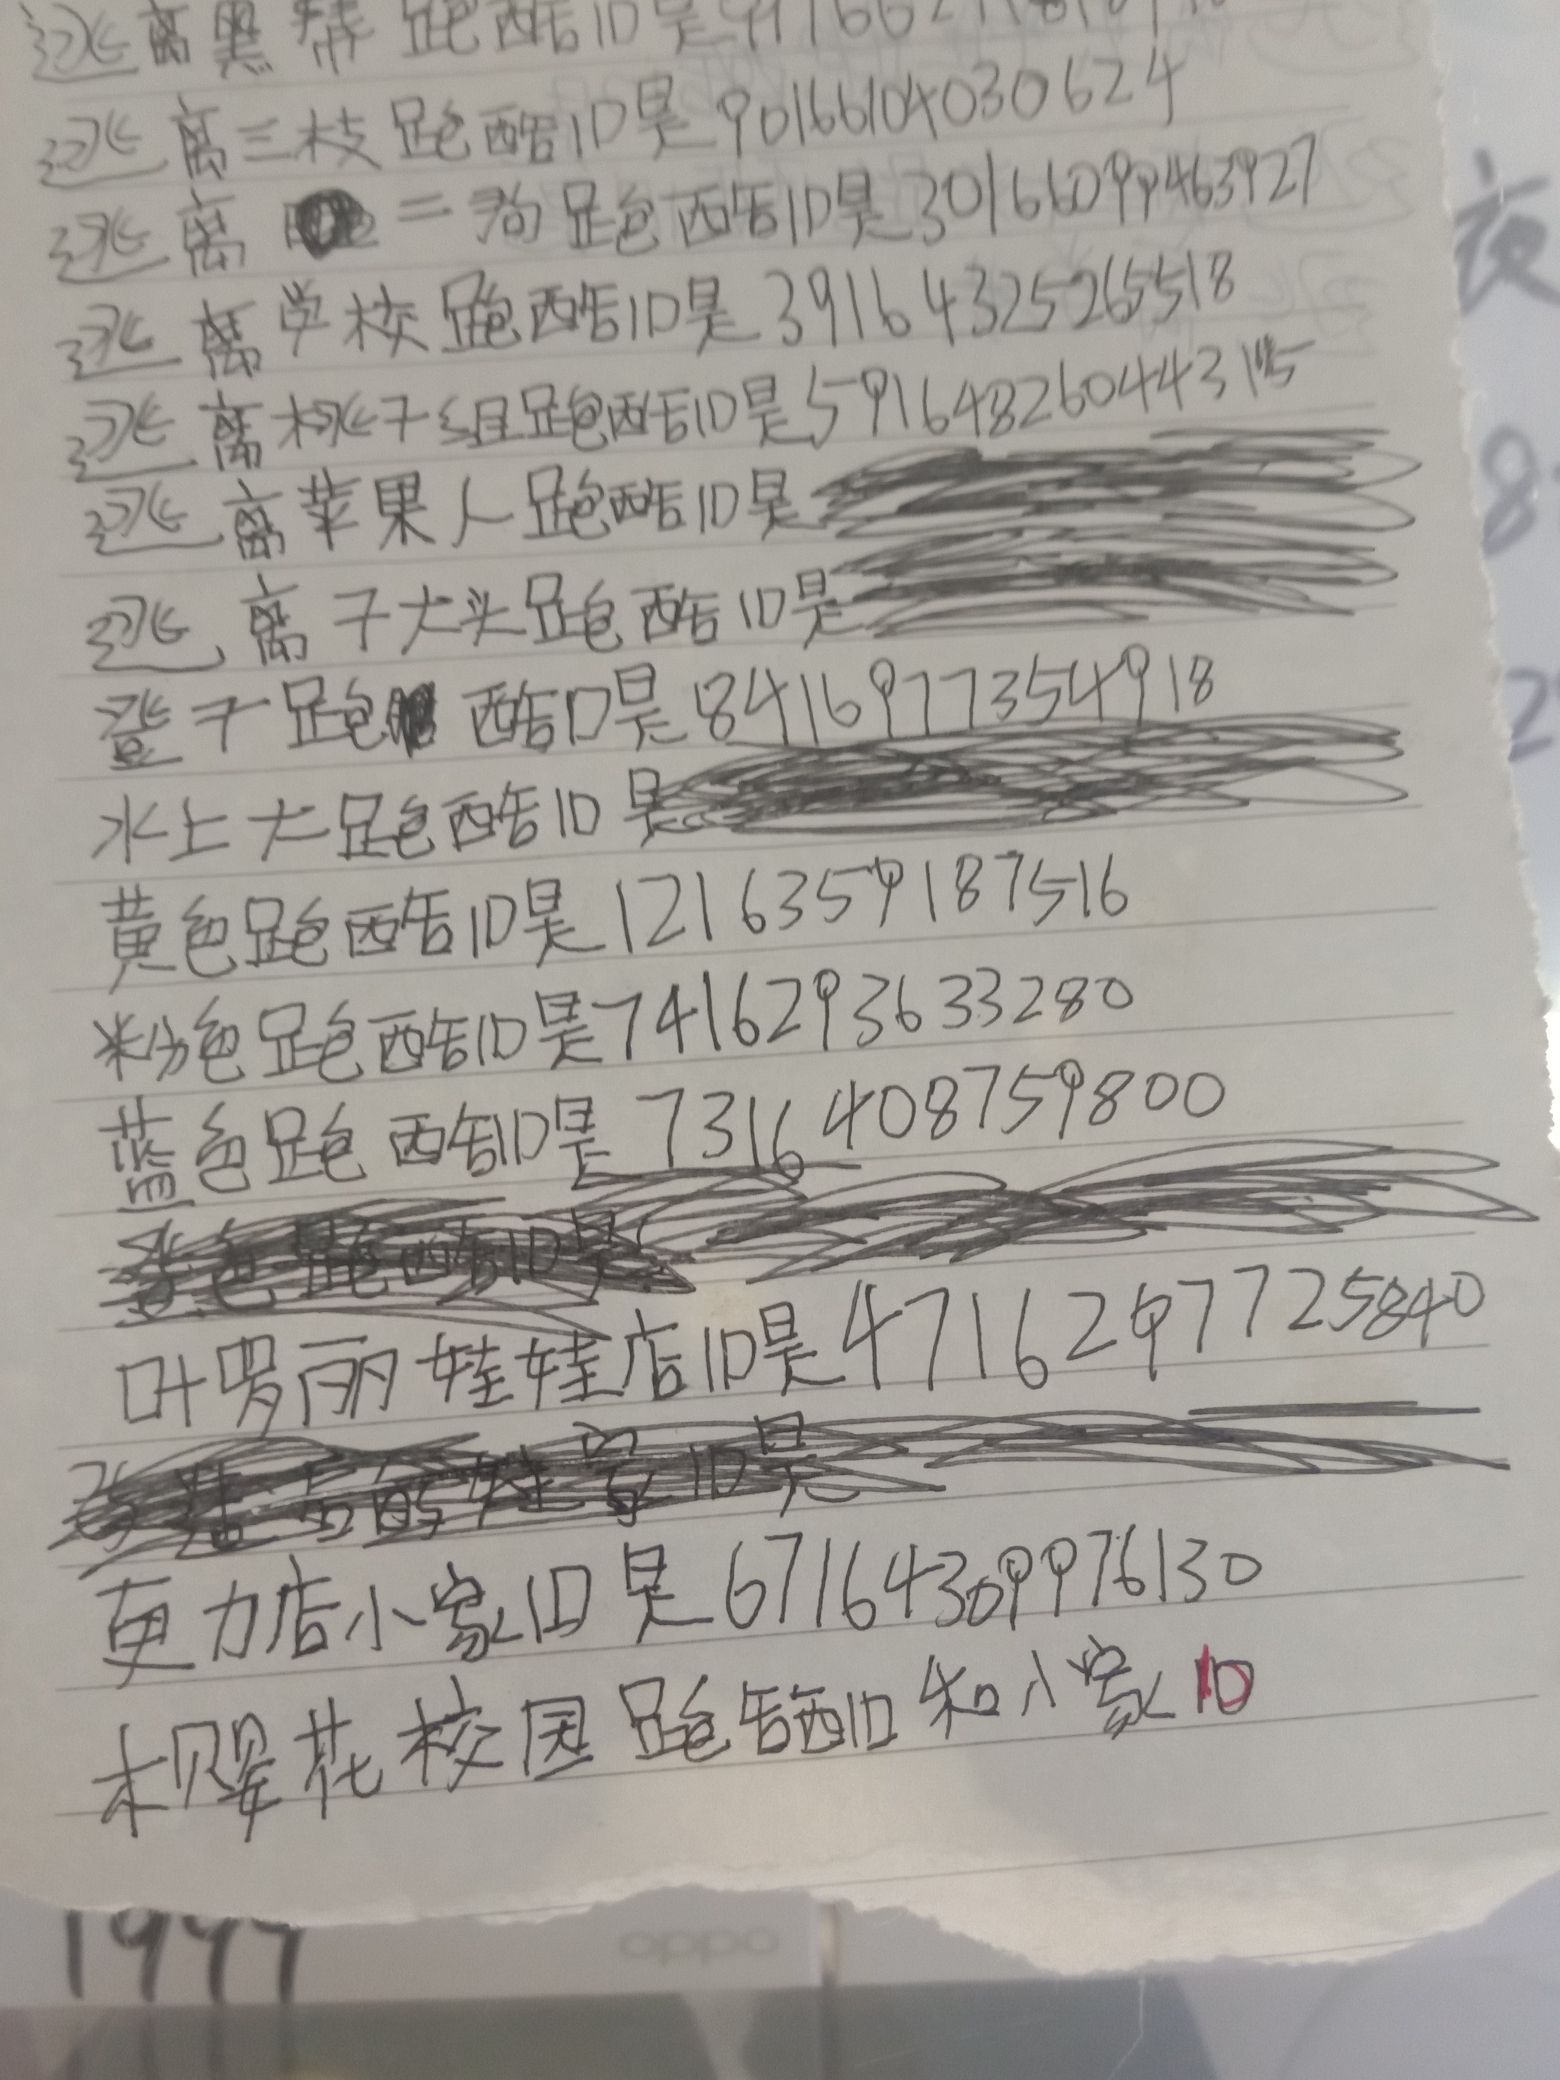 逃离黑帮跑酷ID是
逃离三枝跑酷ID是90166104030624
逃离二狗跑酷ID是30166099463927
逃离学校跑酷ID是39164325265518
逃离桃子组跑酷ID是591648260443115
逃离苹果人跑酷ID是
逃离子大头跑酷ID是
跑酷ID是84169773354918
水上大跑酷ID是
黄色跑酷ID是1216359187516
粉色跑酷ID是7416293633280
蓝色跑酷ID是7316408759800
色跑酷ID是
叶罗丽娃娃店ID是4716297725840
家ID是
更力店小家ID是67164309976130
樱花校园跑酷ID和小家ID
1997
oppo
夜
8
2